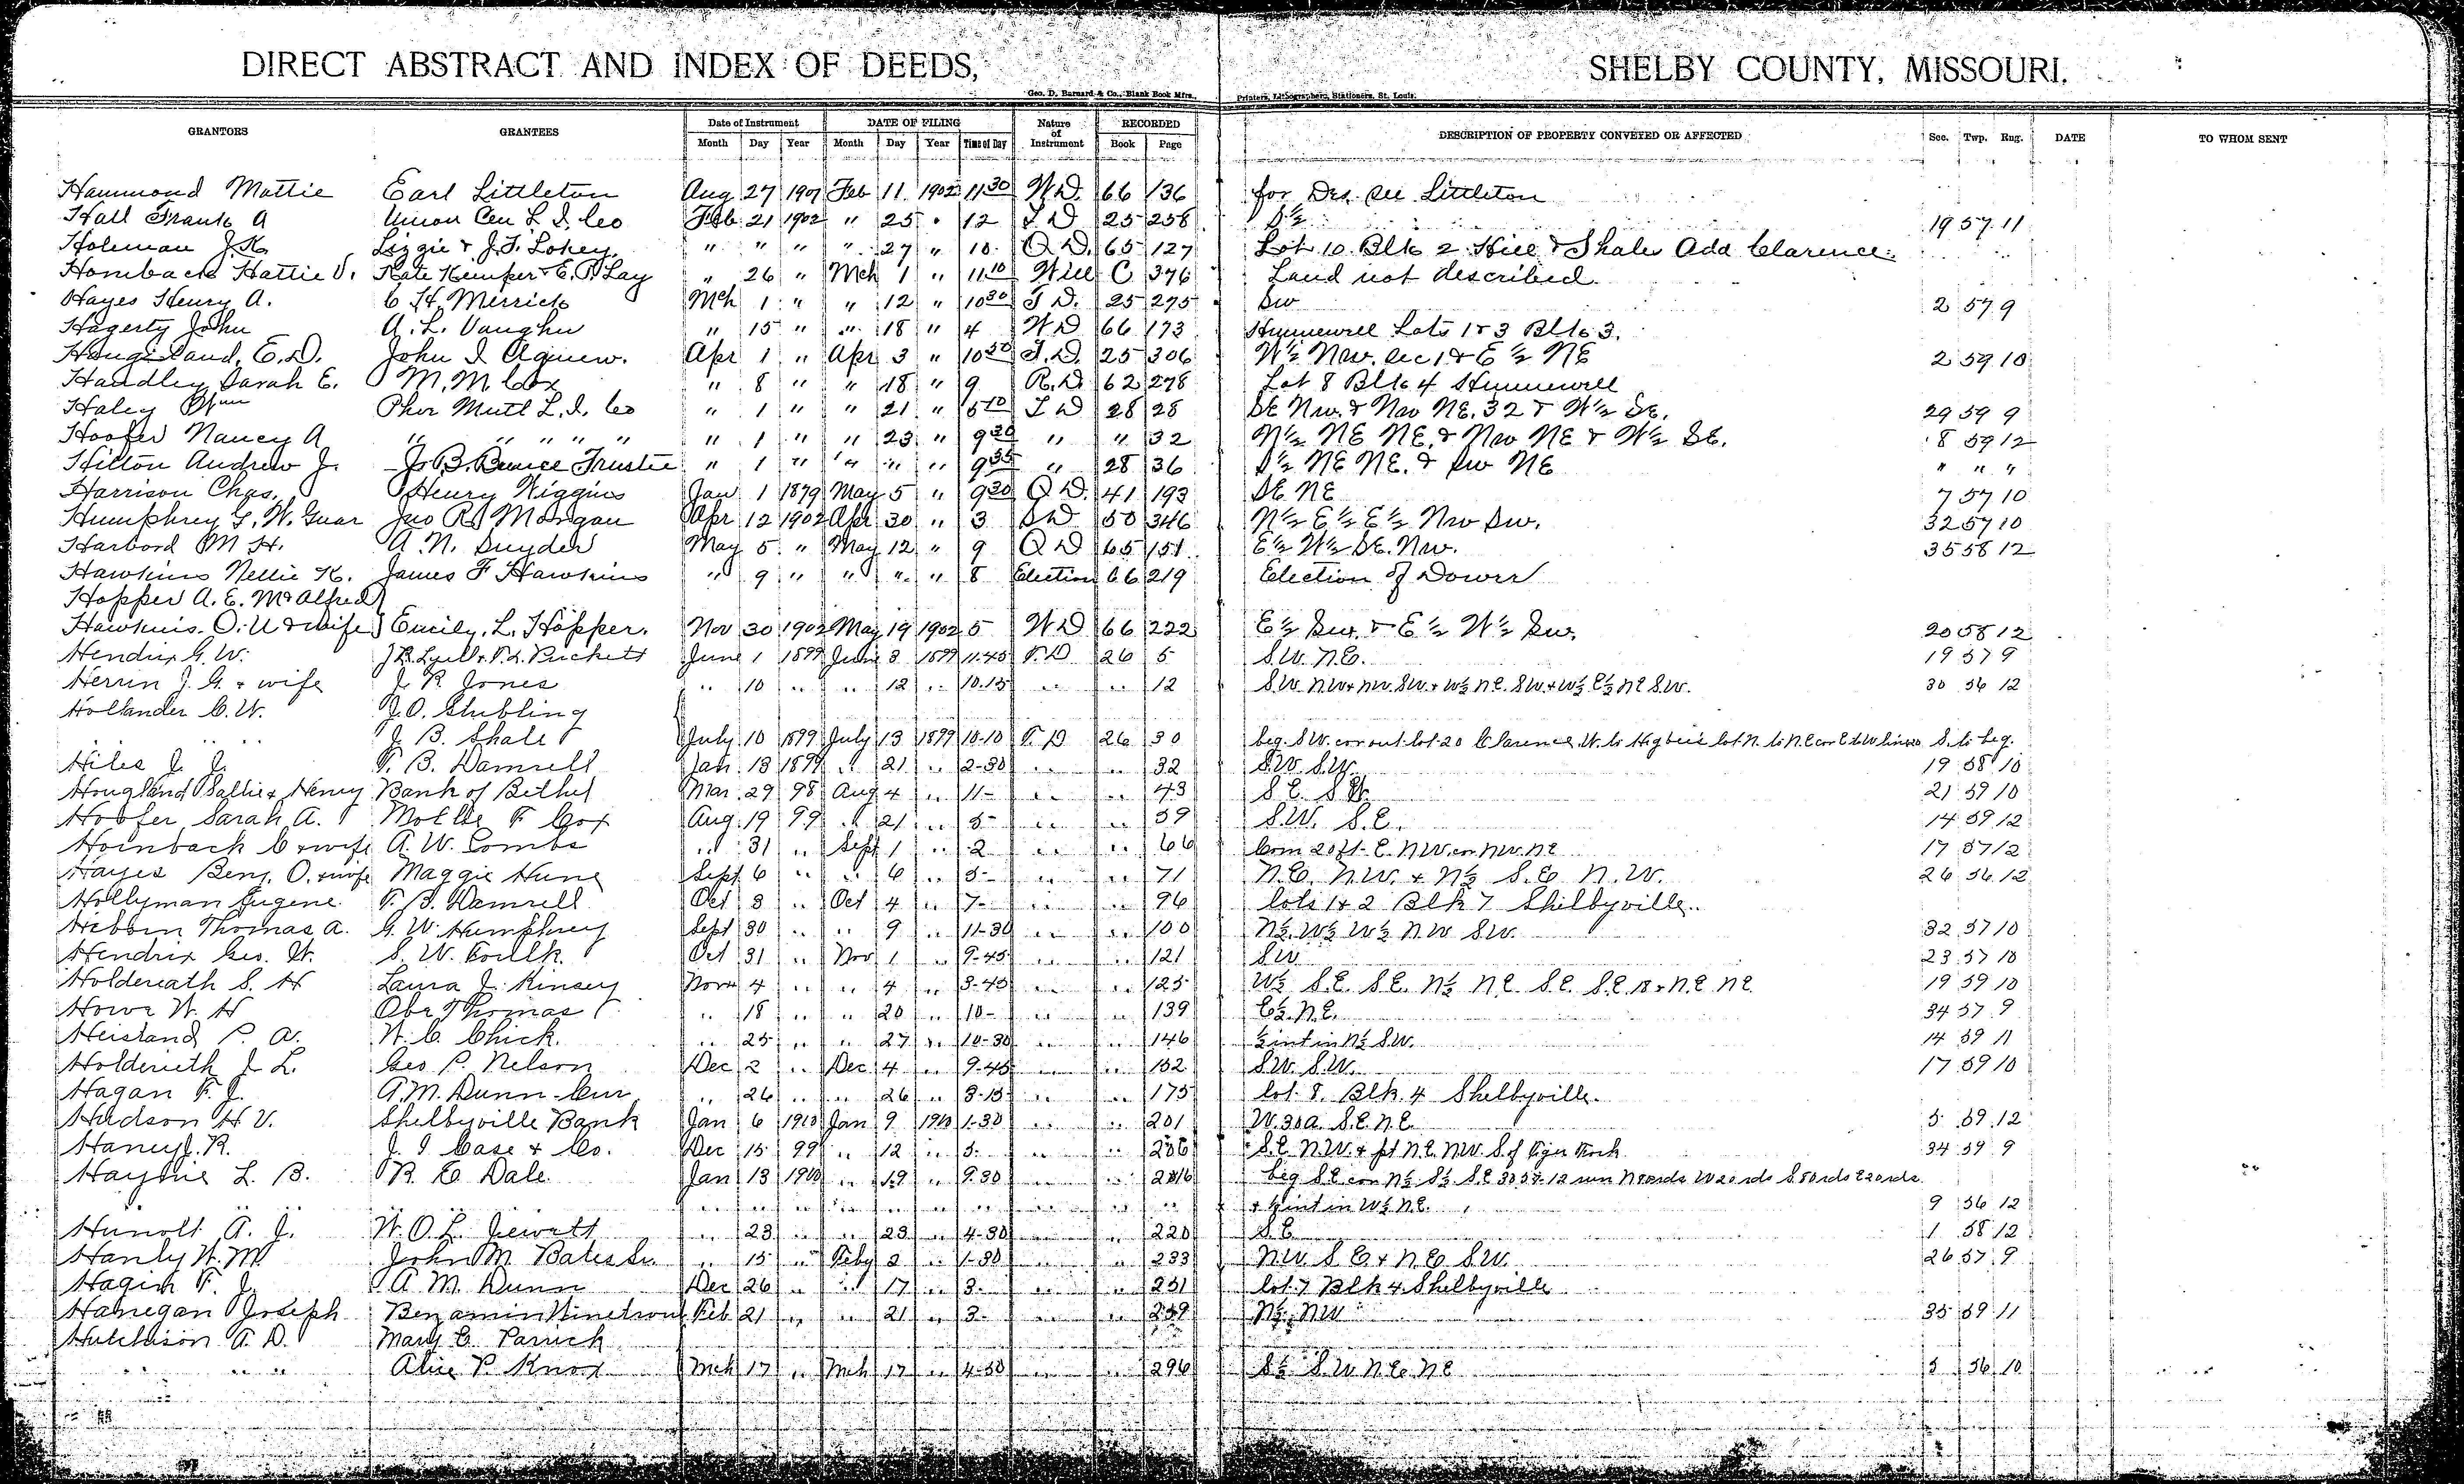 DIRECT ABSTRACT AND INDEX OF DEEDS, SHELBY COUNTY, MISSOURI.
Geo. D. Barnard & Co., Blank Book Mfrs., Printers, Lithographers, Stationers, St. Louis.
GRANTORS GRANTEES Date of Instrument DATE OF FILING Nature of Instrument RECORDED DESCRIPTION OF PROPERTY CONVEYED OR AFFECTED Sec. Twp. Rng. DATE TO WHOM SENT
Month Day Year Month Day Year Time of Day Book Page
Hammond Mattie Earl Littleton Aug 27 1901 Feb 11 1902 11 30 W D. 66 136 for Des. see Littleton
Hall Frank A Union Cen L. I. Co Feb 21 1902 " 25 " 12 T D 25 258 S ½ 19 57 11
Holeman J. K. Lizzie & J. T. Lokey " " " " 27 " 10 Q D. 65 127 Lot 10 Blk 2 Hill & Shale Add Clarence
Hornback Hattie V. Kate Kemper & E. R. Lay " 26 " Mch 1 " 11 10 Will C 376 Land not described
Hayes Henry A. C. H. Merrick Mch 1 " " 12 " 10 30 T D. 25 275 SW 2 57 9
Hagerty John A. L. Vaughn " 15 " " 18 " 4 W D 66 173 Hunnewell Lots 1 & 3 Blk 3.
E. D. John I Agnew. Apr 1 " Apr 3 " 10 50 T. D. 25 306 W ½ NW. Sec 1 & E ½ NE 2 59 10
Handley Sarah E. M. M. Cox " 8 " " 18 " 9 R. D 62 278 Lot 8 Blk 4 Hunnewell
Haley Wm Phox Mutl L. I. Co " 1 " " 21 " 5 10 T D 28 28 SE NW. & NW NE. 32 & W ½ SE. 29 59 9
Hoofer Nancy A " " " " " 1 " " 23 " 9 30 " " 32 N ½ NE NE. & NW NE & W ½ SE. 8 59 12
Hilton Andrew J. J. B. Trustee " 1 " " " " 9 35 " 28 36 S ½ NE NE. & SW NE " " "
Harrison Chas. Henry Wiggins Jan 1 1879 May 5 " 9 30 Q D. 41 193 SE NE 7 57 10
Humphrey G. W. Guar Jno R. Morgan Apr 12 1902 Apr 30 " 3 S D 50 346 N ½ E ½ E ½ NW SW. 32 57 10
Harbord M H. A. N. Snyder May 5 " May 12 " 9 Q D 65 151 E ½ W ½ SE. NW. 35 58 12
Hawkins Nellie K. James F Hawkins " 9 " " " " 8 Election 66 219 Election of Dower
Hopper A. E. Alfred
Hawkins. O. U & wife Emily. L. Hopper. Nov 30 1902 May 19 1902 5 W D 66 222 E ½ SW. & E ½ W ½ SW. 20 58 12
Hendrix G. W. June 1 1899 June 3 1899 11-45 T. D 26 5 S. W. N. E. 19 57 9
Herrin J. G. & wife J. R. Jones " 10 " " 12 " 10-15 " " 12 S. W. N. W & N W. S W. & W ½ N E. S W. & W ½ E ½ N E S. W. 30 56 12
Hollander C. W. J. O. Stribling
" " " J. B. Shale July 10 1899 July 13 1899 10-10 T. D 26 30 beg. S W. cor out lot 20 Clarence W. to
Hiles J. J. T. B. Damrell Jan. 13 1899 " 21 " 2-30 " " 32 S. W. S. W. 19 58 10
Hougland Sallie & Henry Bank of Bethel Mar. 29 98 Aug 4 " 11- " " 43 S E. S W. 21 59 10
Hoofer Sarah A. Mollie F Cox Aug. 19 99 " 21 " 5- " " 59 S. W. S. E. 14 59 12
Hornback C & wife A. W. Combs " 31 " Sept 1 " 2 " " 66 Com 20 ft. E. N W. cor N W. N E 17 57 12
Hayes Benj. O. & wife Maggie Sept 6 " " 6 " 5- " " 71 N. E. N. W. & N ½ S. E N. W. 26 56 12
Hollyman Eugene T. B. Damrell Oct 3 " Oct 4 " 7- " " 96 lots 1 & 2 Blk 7 Shelbyville.
Thomas A. G. W. Humphrey Sept 30 " " 9 " 11-30 " " 100 N ½ W ½ W ½ N W S W. 32 57 10
Hendrix Geo. W. S. W. Oct 31 " Nov 1 " 9-45 " " 121 S W 23 57 10
S. H Laura J. Kinsey Nov 4 " " 4 " 3-45 " " 125 W ½ S. E. S E. N ½ N E. S E. S. E. 18 & N. E N E 19 59 10
Howe W. H Thomas " 18 " " 20 " 10- " " 139 E ½ N. E. 34 57 9
Heistand P. A. W. C. Chick. " 25 " " 27 " 10-30 " " 146 ½ int in N ½ S. W. 14 59 11
J L. Geo P. Nelson Dec 2 " Dec 4 " 9-45 " " 152 S. W. S. W. 17 59 10
Hagan F. J. A. M. Dunn " 26 " " 26 " 3-15 " " 175 lot. 8. Blk. 4 Shelbyville.
Hudson H V. Shelbyville Bank Jan 6 1910 Jan 9 1910 1-30 " " 201 W. 30 a. S. E. N. E. 5 59 12
Haney J. R. J. I Case & Co. Dec 15 99 " 12 " 5- " " 206 S. E. N. W. & pt N. E. N W. S. of Tiger Fork 34 59 9
Haynie L. B. R. E Dale Jan 13 1900 " 19 " 9-30 " " beg S. E cor N ½ S ½ S. E 30 57-12 run N 80 rds W 20 rds S. 80 rds E 20 rds.
" " " " " " " " & ½ int in W ½ N. E. 9 56 12
Hunolt A. J. W. O. L. Jewett " 23 " " 23 " 4-30 " " 220 S. E. 1 58 12
Hanly W. M John M. Bates Sr. " 15 " Feby 2 " 1-30 " " 233 N. W. S. E & N. E S. W. 26 57 9
F. J. A M. Dunn Dec 26 " " 17 " 3- " " 251 lot 7 Blk 4 Shelbyville
Hanegan Joseph Benjamin Feb 21 " " 21 " 3- " " 259 N ½ N W 35 59 11
Hutchison A. D. Mary E.
" " " Alice P. Knox Mch 17 " Mch 17 " 4-30 " " 296 S ½ S. W N. E. N E 5 56 10